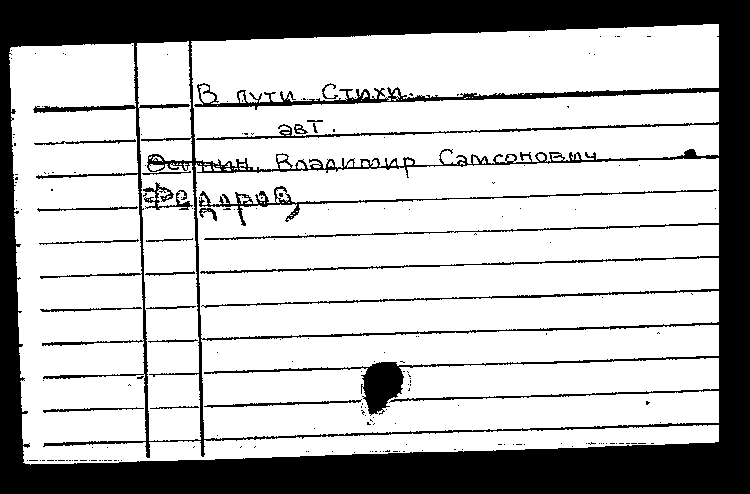 В пути. Стихи.
авт.
Владимир Самсонович
Федоров,